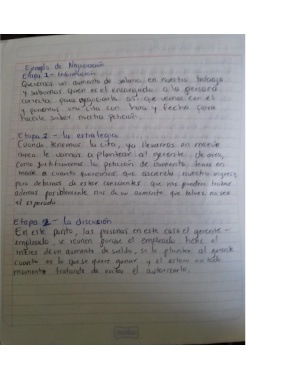 Ejemplo de Negociación
Etapa 1 - Información
Queremos un aumento de salario en nuestro trabajo
y sabemos quien es el encargado o la persona
correcta para negociarlo así que vamos con el
y ponemos una cita con hora y fecha para
hacerle saber nuestra petición.
Etapa 2 - la estrategia
Cuando tenemos la cita, ya llevamos en mente
como le vamos a plantear al gerente de area,
como justificaremos la petición de aumento, tener en
mente a cuanto queremos que ascienda nuestro ingreso
pero debemos de estar conscientes que nos pueden
ademas posiblemente nos de un aumento que talvez no sea
el esperado
Etapa 3 - La discusión
En este punto, las personas en este caso el gerente -
empleado, se reunen porque el empleado tiene el
interes de un aumento de sueldo, se le plantea al gerente
cuanto es lo que se quiere ganar y el estara en todo
momento tratando de evitar el